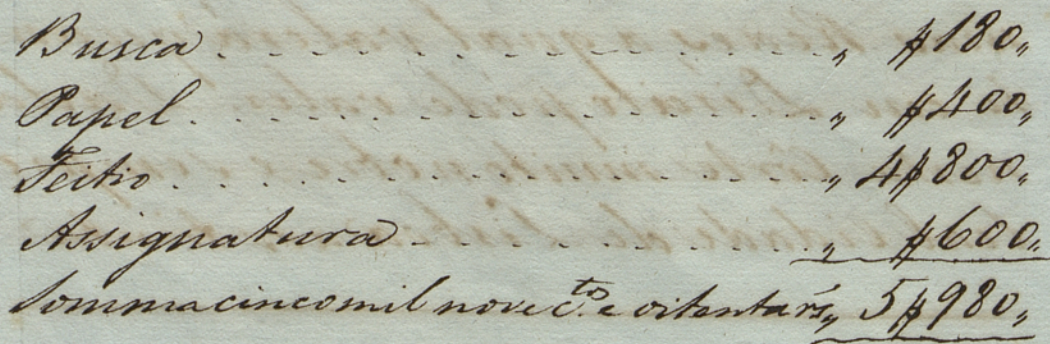 Busca . . . . . . . . . . . . . . . . . . . . „ $180„
Papel . . . . . . . . . . . . . . . . . . . . „ $400„
Feitio . . . . . . . . . . . . . . . . . . . . „ 4$800„
Assignatura . . . . . . . . . . . . . . . „ $600„
Somma cinco mil nove c.tos e oitenta rs„ 5$980„